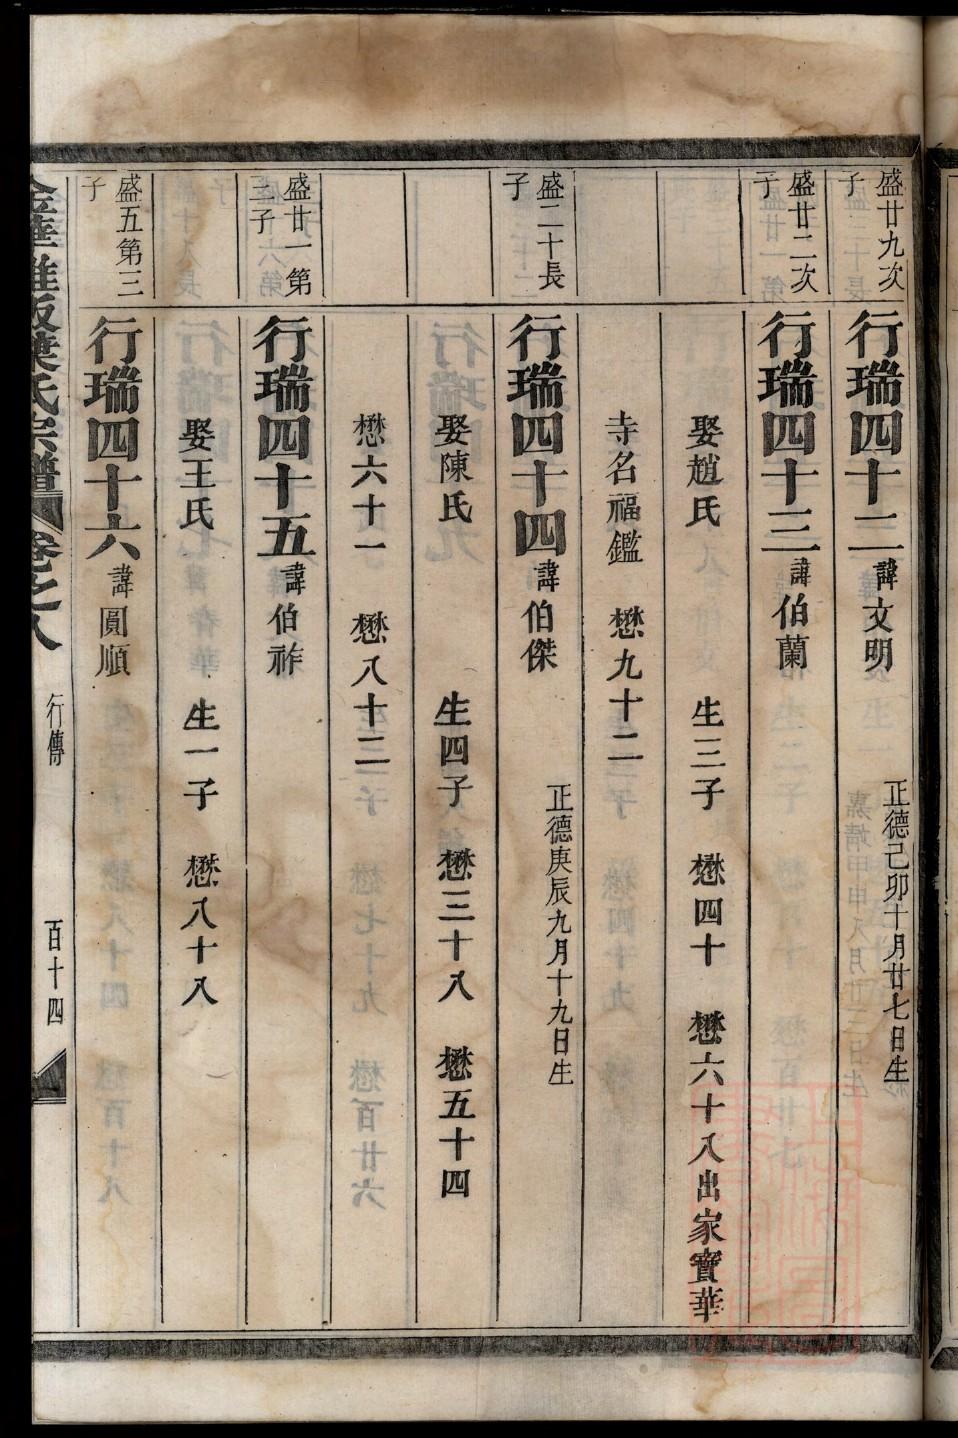 盛廿九次子
行瑞四十二諱文明 正德己卯十月廿七日生
盛廿二次子
行瑞四十三諱伯蘭
娶趙氏 生三子 懋四十 懋六十八出家寶華
寺名福鑑 懋九十二
盛二十長子
行瑞四十四諱伯傑 正德庚辰九月十九日生
娶陳氏 生四子 懋三十八 懋五十四
懋六十一 懋八十二
盛廿一第三子
行瑞四十五諱伯祚
娶王氏 生一子 懋八十八
盛五第三子
行瑞四十六諱圓順
葉氏宗譜 卷之八 行傳 百十四